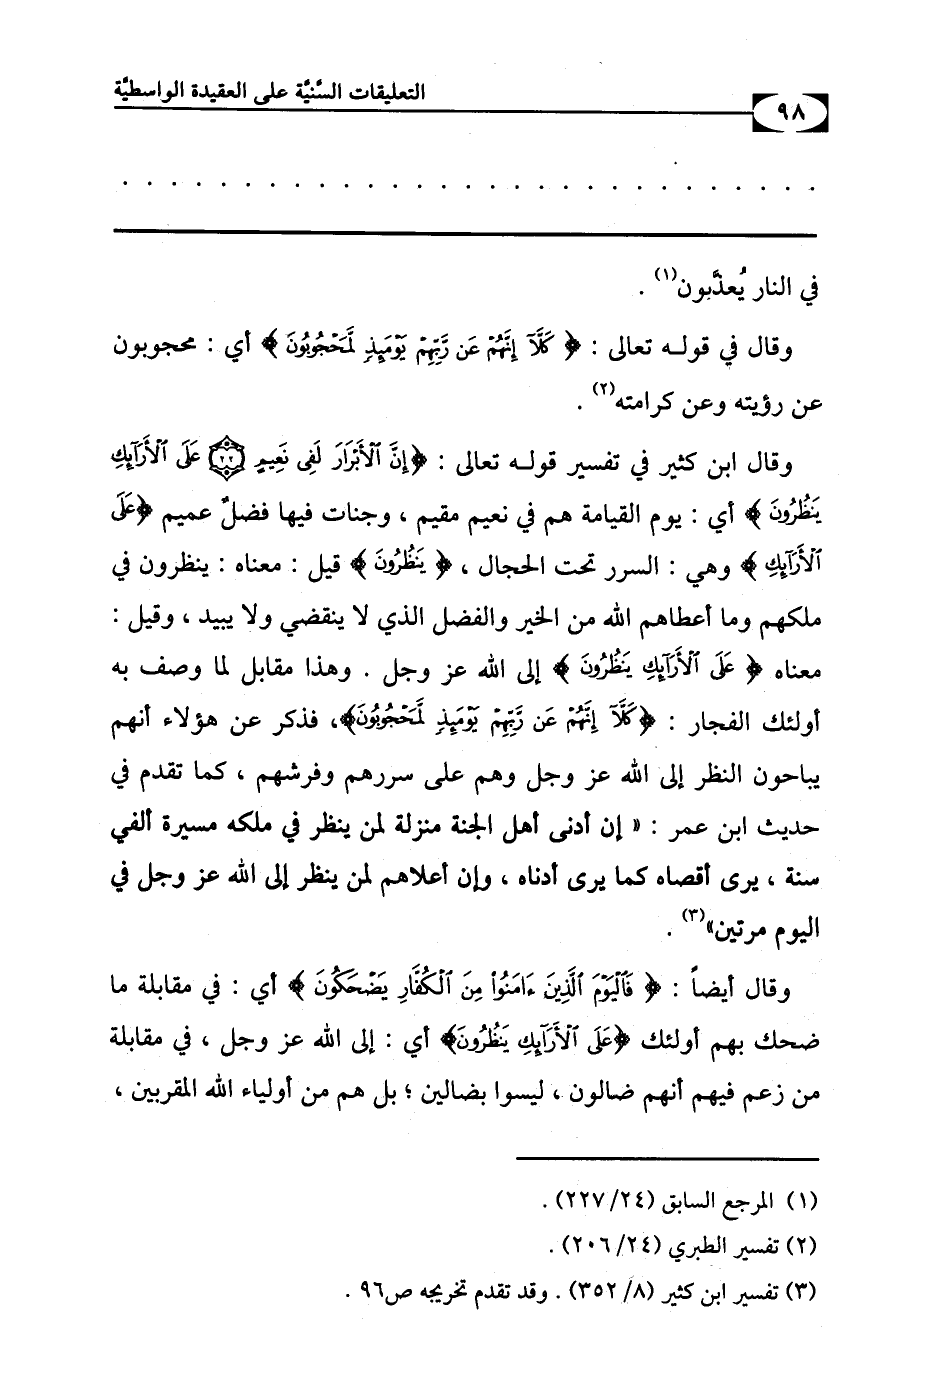 التعليقات السُّنيَّة على العقيدة الواسطيَّة
٩٨
. . . . . . . . . . . . . . . . . . . . . . . . . . . . .
في النار يُعذَّبون(١) .
وقال في قولـه تعالى : ﴿ كَلَّآ إِنَّهُمْ عَن رَّبِّهِمْ يَوْمَئِذٍ لَّمَحْجُوبُونَ ﴾ أي : محجوبون
عن رؤيته وعن كرامته(٢) .
وقال ابن كثير في تفسير قولـه تعالى : ﴿إِنَّ ٱلْأَبْرَارَ لَفِى نَعِيمٍ ٢٢ عَلَى ٱلْأَرَآئِكِ
يَنظُرُونَ ﴾ أي : يوم القيامة هم في نعيم مقيم ، وجنات فيها فضلٌ عميم ﴿عَلَى
ٱلْأَرَآئِكِ ﴾ وهي : السرر تحت الحجال ، ﴿ يَنظُرُونَ ﴾ قيل : معناه : ينظرون في
ملكهم وما أعطاهم الله من الخير والفضل الذي لا ينقضي ولا يبيد ، وقيل :
معناه ﴿ عَلَى ٱلْأَرَآئِكِ يَنظُرُونَ ﴾ إلى الله عز وجل . وهذا مقابل لما وصف به
أولئك الفجار : ﴿كَلَّآ إِنَّهُمْ عَن رَّبِّهِمْ يَوْمَئِذٍ لَّمَحْجُوبُونَ﴾، فذكر عن هؤلاء أنهم
يباحون النظر إلى الله عز وجل وهم على سررهم وفرشهم ، كما تقدم في
حديث ابن عمر : « إن أدنى أهل الجنة منزلة لمن ينظر في ملكه مسيرة ألفي
سنة ، يرى أقصاه كما يرى أدناه ، وإن أعلاهم لمن ينظر إلى الله عز وجل في
اليوم مرتين»(٣) .
وقال أيضاً : ﴿ فَٱلْيَوْمَ ٱلَّذِينَ ءَامَنُوا۟ مِنَ ٱلْكُفَّارِ يَضْحَكُونَ ﴾ أي : في مقابلة ما
ضحك بهم أولئك ﴿عَلَى ٱلْأَرَآئِكِ يَنظُرُونَ﴾ أي : إلى الله عز وجل ، في مقابلة
من زعم فيهم أنهم ضالون ، ليسوا بضالين ؛ بل هم من أولياء الله المقربين ،
(١) المرجع السابق (٢٤/ ٢٢٧) .
(٢) تفسير الطبري (٢٤/ ٢٠٦) .
(٣) تفسير ابن كثير (٨/ ٣٥٢) . وقد تقدم تخريجه ص٩٦ .